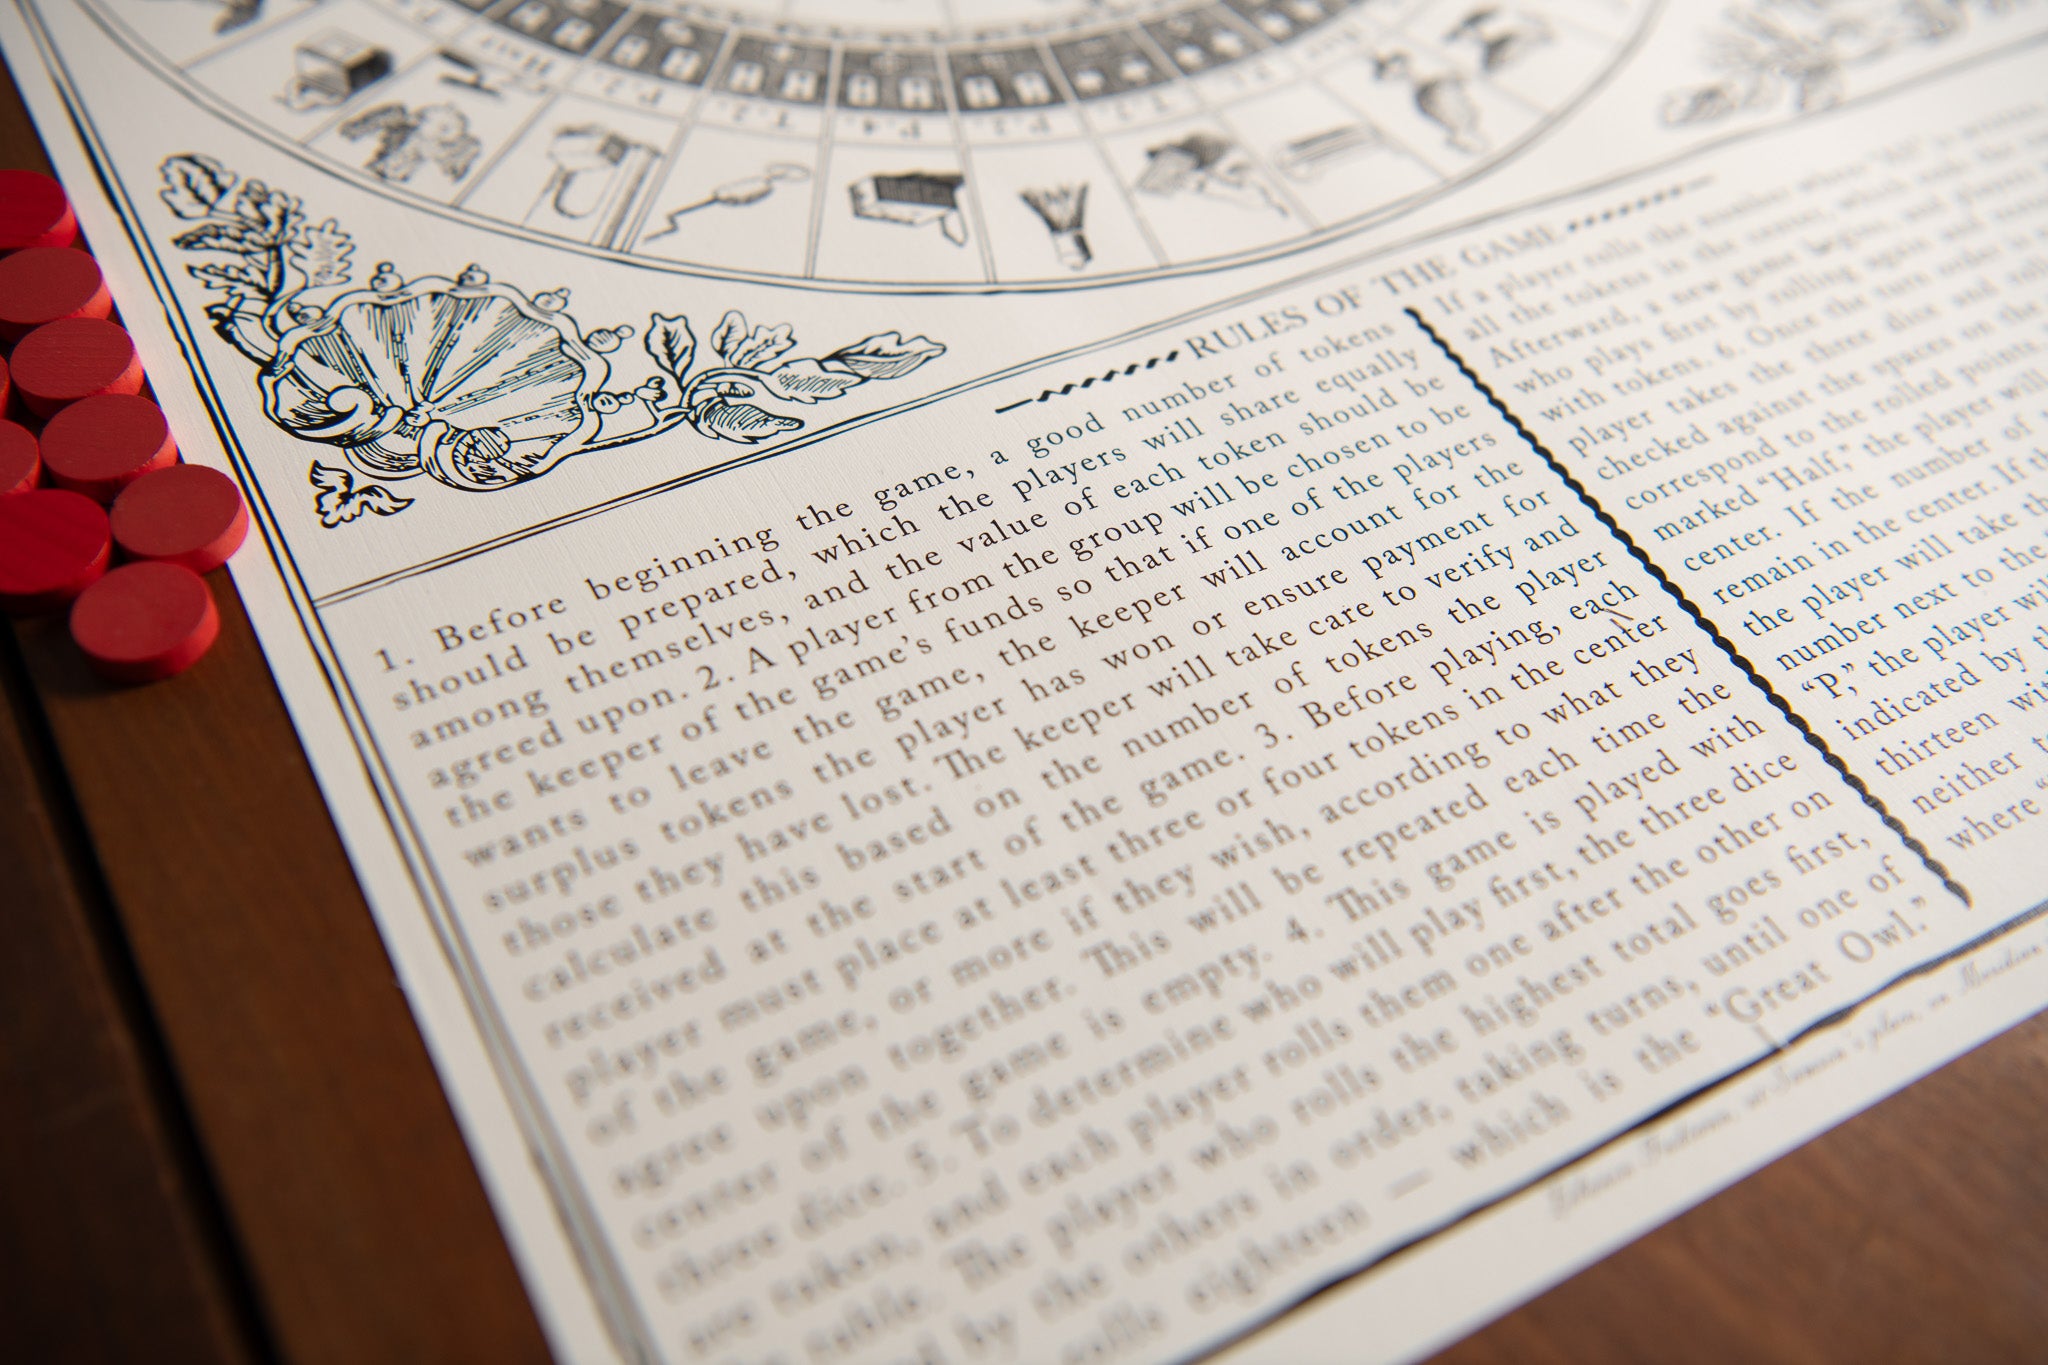 RULES OF THE GAME
1. Before beginning the game, a good number of tokens
should be prepared, which the players will share equally
among themselves, and the value of each token should be
agreed upon. 2. A player from the group will be chosen to be
the keeper of the game's funds so that if one of the players
wants to leave the game, the keeper will account for the
surplus tokens the player has won or ensure payment for
those they have lost. The keeper will take care to verify and
calculate this based on the number of tokens the player
received at the start of the game. 3. Before playing, each
player must place at least three or four tokens in the center
of the game, or more if they wish, according to what they
agree upon together. This will be repeated each time the
center of the game is empty. 4. This game is played with
three dice. 5. To determine who will play first, the three dice
are taken, and each player rolls them one after the other on
table. The player who rolls the highest total goes first,
by the others in order, taking turns, until one of
rolls eighteen — which is the “Great Owl.”
If a player rolls the number
all the tokens in the center, which
Afterward, a new game begins, and players
who plays first by rolling again
with tokens. 6. Once the turn order is
player takes the three dice and
checked against the spaces on the
correspond to the rolled points
marked “Half,” the player will
center. If the number of
remain in the center. If
the player will take the
number next to the
“P,” the player will
indicated by
thirteen
neither
where
P.2.
T.2.
P.4.
P.2.
P.2.
T.2.